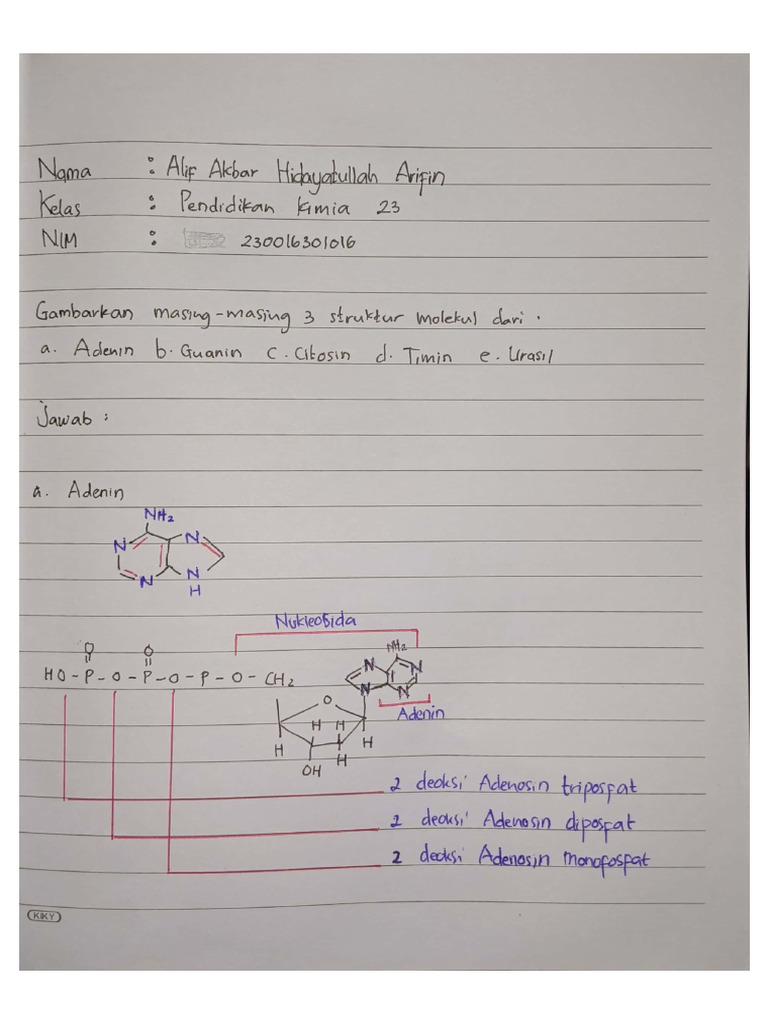 Nama : Alif Akbar Hidayatullah Arifin
Kelas : Pendidikan Kimia 23
NIM : 230016301016
Gambarkan masing-masing 3 struktur molekul dari :
a. Adenin b. Guanin c. Citosin d. Timin e. Urasil
Jawab :
a. Adenin
NH2
N N
N N
H
Nukleosida
O O NH2
HO - P - O - P - O - P - O - CH2
N N
N N
Adenin
O
H H
H H
H
OH
2 deoksi Adenosin triposfat
2 deoksi Adenosin diposfat
2 deoksi Adenosin monofosfat
KIKY